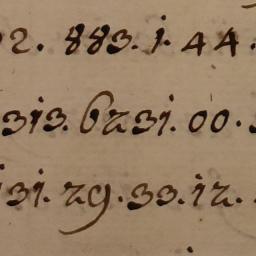 2. 883. 1. 44.
313. 6231. 00.
31. 29. 33. 12.